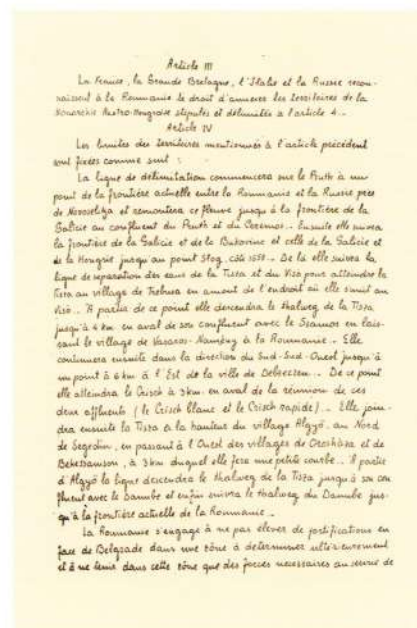 Article III
La France, la Grande Bretagne, l'Italie et la Russie recon-
naissent à la Roumanie le droit d'annexer les territoires de la
Monarchie Austro-Hongroise stipulés et délimités à l'article 4._
Article IV
Les limites des territoires mentionnés à l'article précédent
sont fixées comme suit :
La ligne de délimitation commencera sur le Pruth à un
point de la frontière actuelle entre la Roumanie et la Russie près
de Novoselitza et remontera ce fleuve jusqu'à la frontière de la
Galicie au confluent du Pruth et du Ceremos._ Ensuite elle suivra
la frontière de la Galicie et de la Bukovine et celle de la Galicie et
de la Hongrie jusqu'au point Stog, côte 1655._ De là elle suivra la
ligne de séparation des eaux de la Tisza et du Viso pour atteindre la
Tisza au village de Trebusa en amont de l'endroit où elle s'unit au
Viso._ A partir de ce point elle descendra le thalweg de la Tisza
jusqu'à 4 km. en aval de son confluent avec le Szamos en lais-
sant le village de Vasaros-Namény à la Roumanie._ Elle
continuera ensuite dans la direction du Sud-Sud-Ouest jusqu'à
un point à 6 km. à l'Est de la ville de Debreczen._ De ce point
elle atteindra le Crisch à 3 km. en aval de la réunion de ces
deux affluents (le Crisch blanc et le Crisch rapide)._ Elle join-
dra ensuite la Tisza à la hauteur du village Algyö, au Nord
de Szegedin, en passant à l'Ouest des villages de Oroshaza et de
Bekessamson, à 3 km duquel elle fera une petite courbe._ A partir
d'Algyö la ligne descendra le thalweg de la Tisza jusqu'à son con
fluent avec le Danube et enfin suivra le thalweg du Danube jus-
qu'à la frontière actuelle de la Roumanie._
La Roumanie s'engage à ne pas élever de fortifications en
face de Belgrade dans une zône à déterminer ultérieurement
et à ne tenir dans cette zône que des forces nécessaires au service de